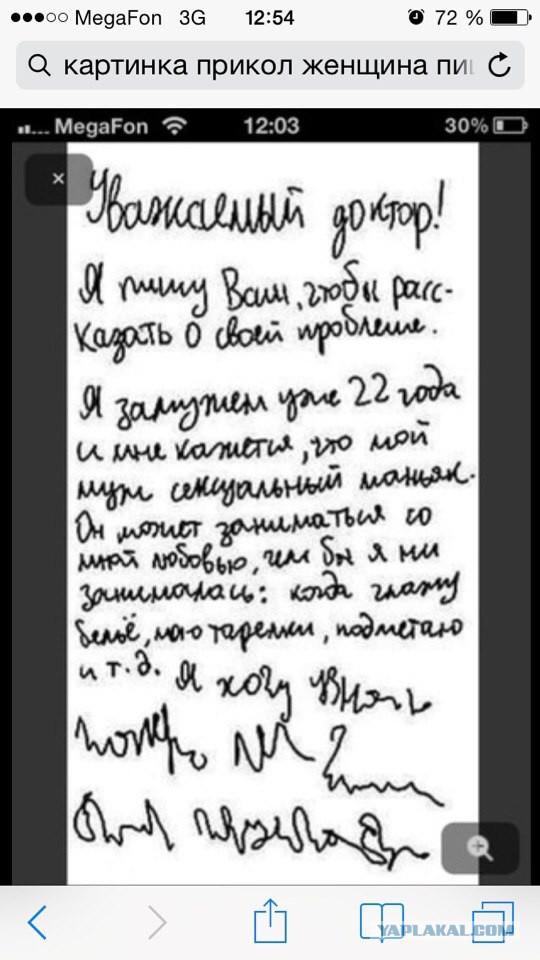 MegaFon 3G 12:54 72 %
картинка прикол женщина пи
MegaFon 12:03 30%
Уважаемый доктор!
Я пишу Вам, чтобы расс-
казать о своей проблеме.
Я замужем уже 22 года
и мне кажется, что мой
муж сексуальный маньяк.
Он может заниматься со
мной любовью, чем бы я ни
занималась: когда глажу
бельё, мою тарелки, подметаю
и т.д. Я хочу знать
YAPLAKAL.COM